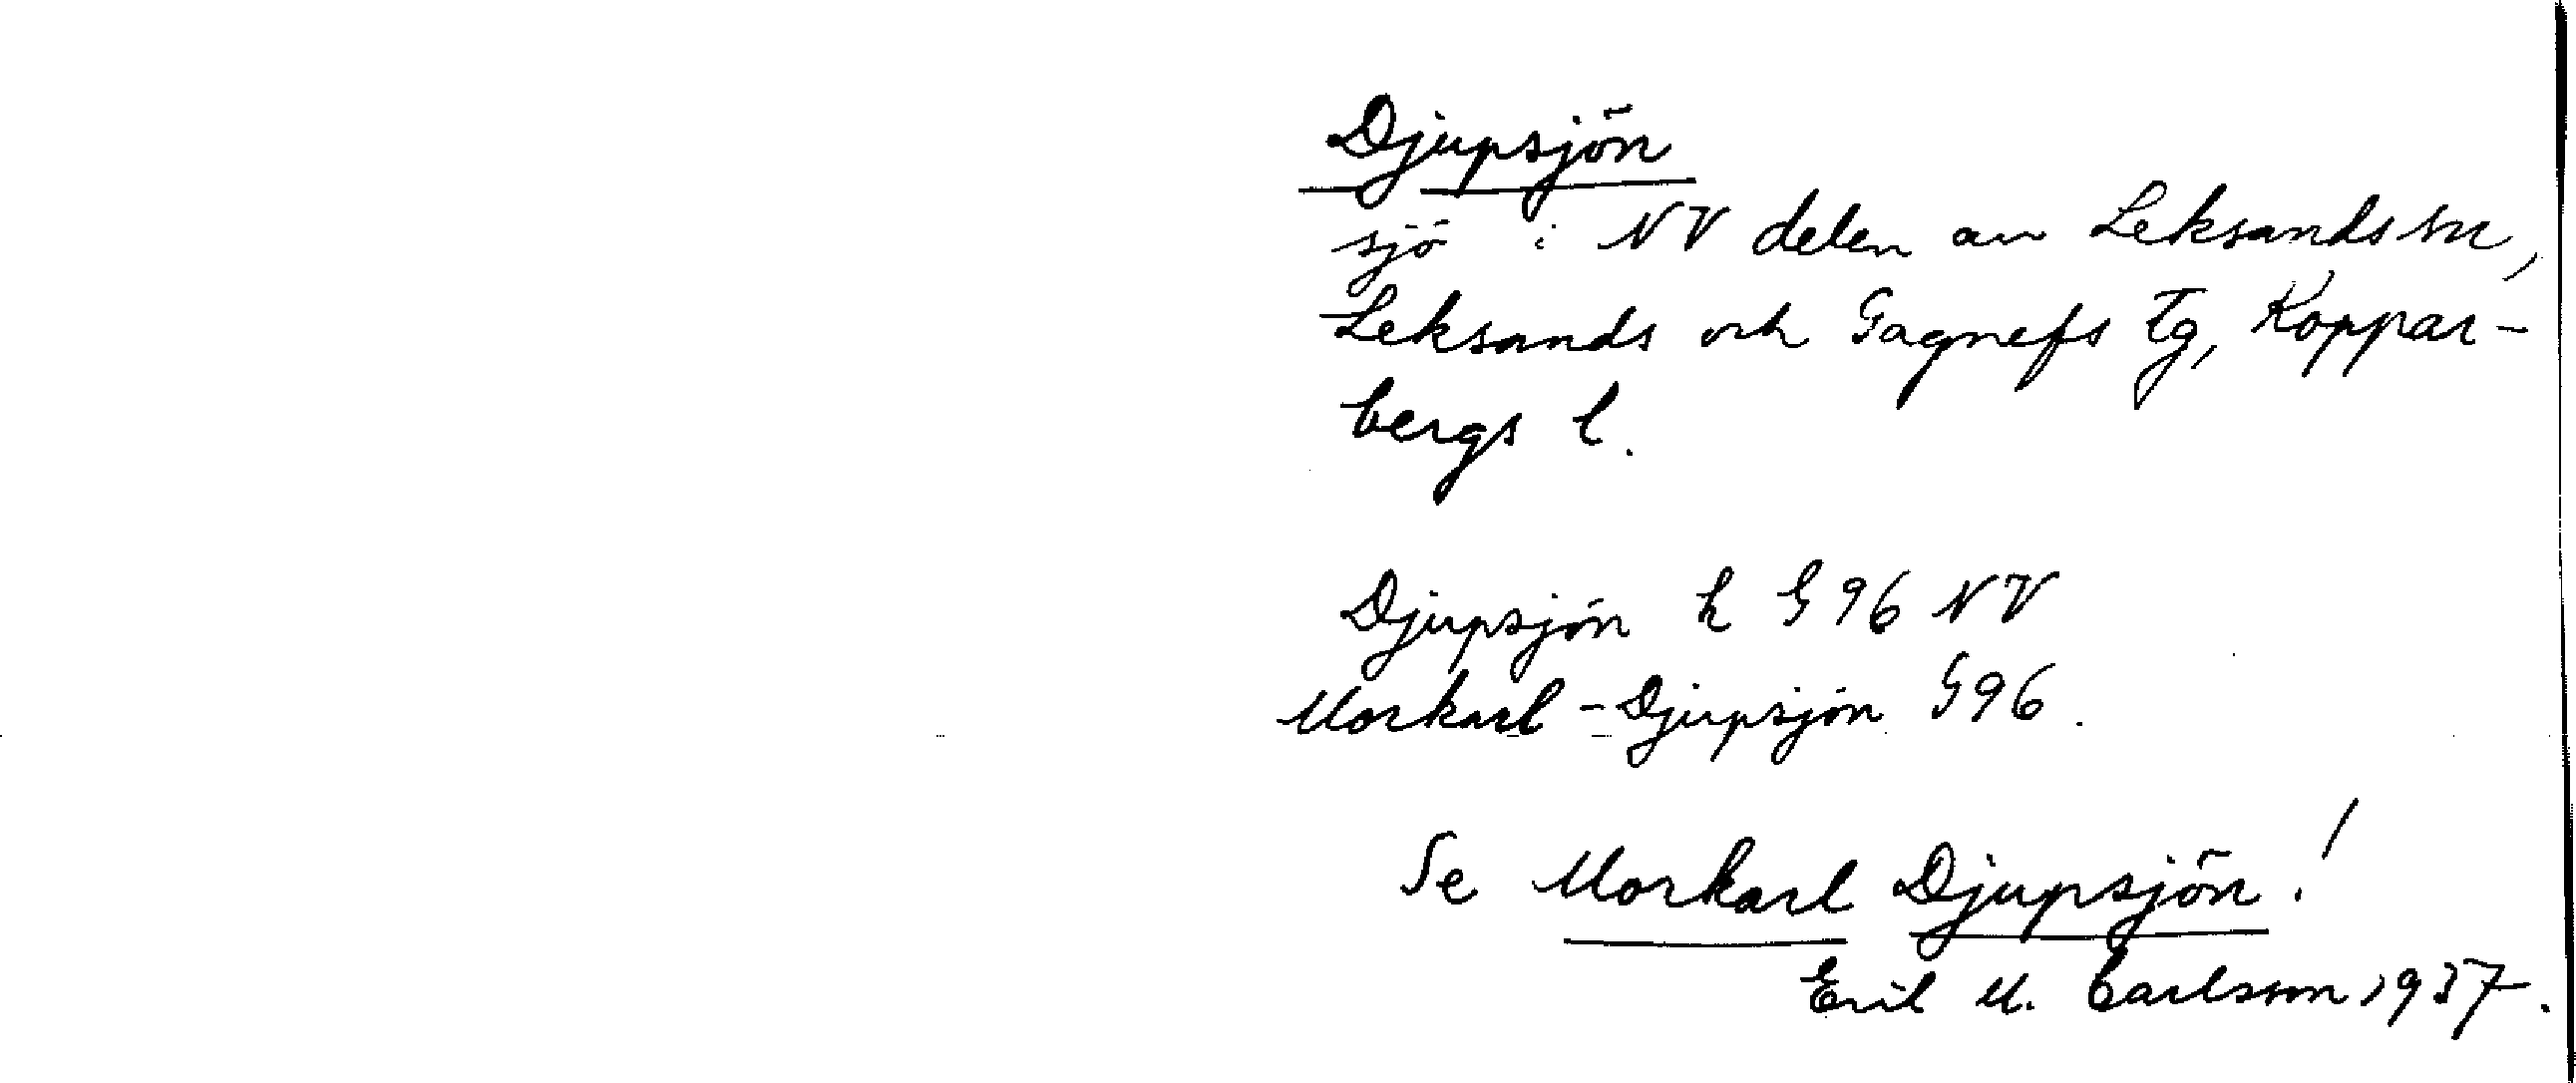 Djupsjön
sjö i NV delen av Leksands sn,
Leksands och Gagnefs tg, Koppar-
bergs l.
Djupsjön k G 96 NV
Morkarl - Djupsjön G96.
Se Morkarl Djupsjön!
Eril M. Carlsson 1937.